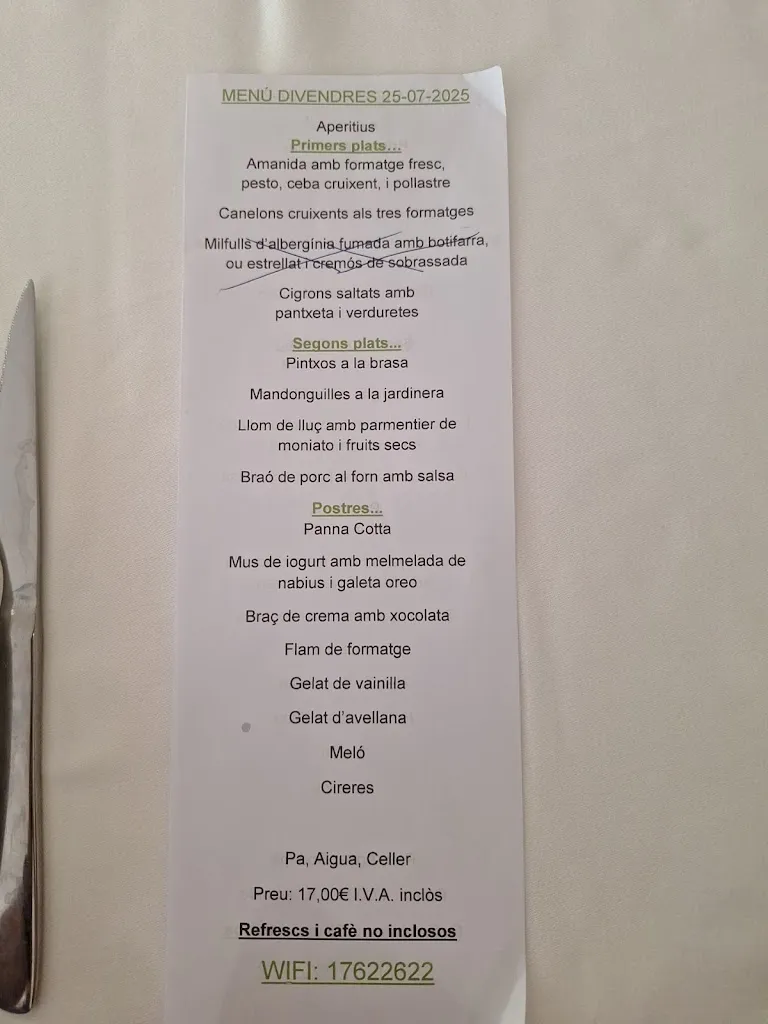 MENÚ DIVENDRES 25-07-2025
Aperitius
Primers plats...
Amanida amb formatge fresc,
pesto, ceba cruixent, i pollastre
Canelons cruixents als tres formatges
Milfulls d'albergínia fumada amb botifarra,
ou estrellat i cremós de sobrassada
Cigrons saltats amb
pantxeta i verduretes
Segons plats...
Pintxos a la brasa
Mandonguilles a la jardinera
Llom de lluç amb parmentier de
moniato i fruits secs
Braó de porc al forn amb salsa
Postres...
Panna Cotta
Mus de iogurt amb melmelada de
nabius i galeta oreo
Braç de crema amb xocolata
Flam de formatge
Gelat de vainilla
Gelat d'avellana
Meló
Cireres
Pa, Aigua, Celler
Preu: 17,00€ I.V.A. inclòs
Refrescs i cafè no inclosos
WIFI: 17622622